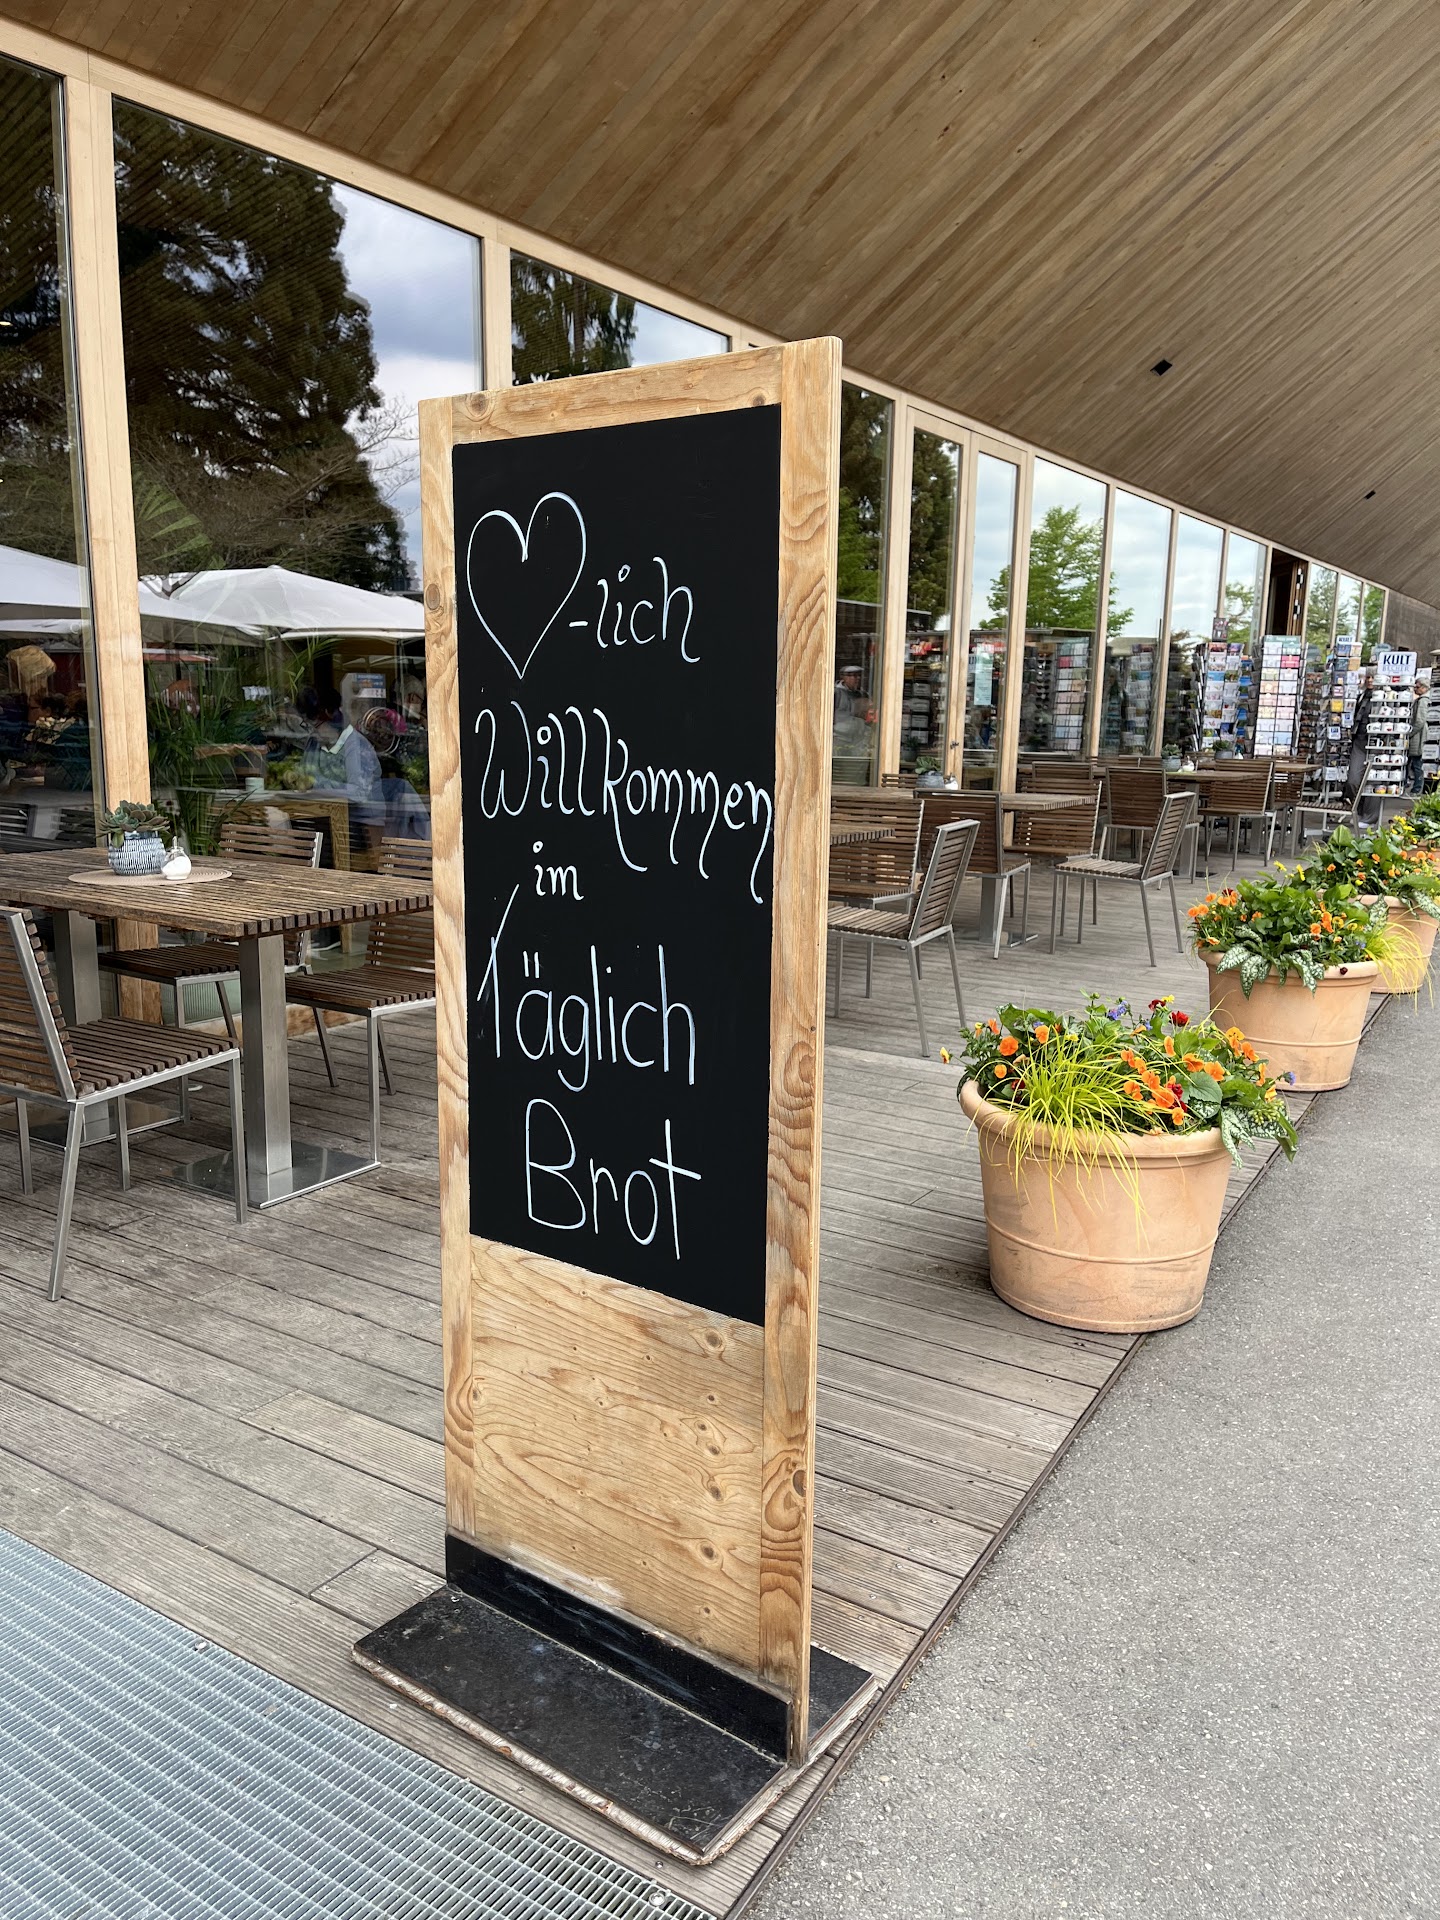 ♥-lich
Willkommen
im
Täglich
Brot
KULT